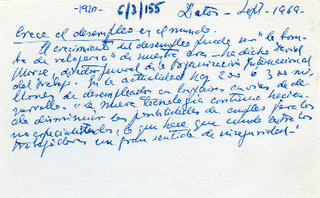 -1920- 6/3/155 Datos - Sept-1969-
Crece el desempleo en el mundo.
El crecimiento del desempleo puede ser "la bom-
ba de relojería" de nuestra era, ha dicho David
Morse, director general de la Organización Internacional
del Trabajo. En la actualidad hay 200 o 300 mi-
llones de desempleados en los países en vías de de-
sarrollo. "La nueva tecnología continúa hacien-
do disminuir las posibilidades de empleo para los
no especializados, lo que hace que cunda entre los
trabajadores un gran sentido de inseguridad."